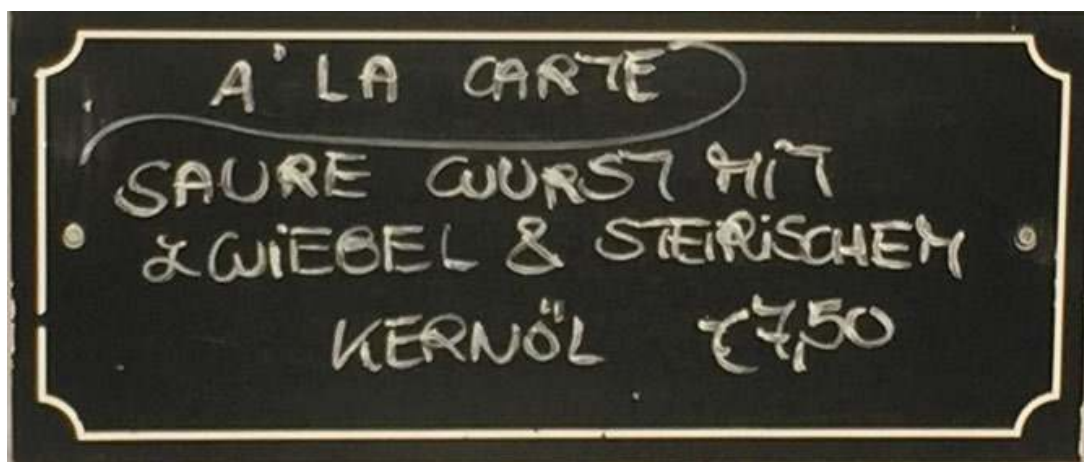 A' LA CARTE
SAURE WURST MIT
ZWIEBEL & STEIRISCHEM
KERNÖL €7,50